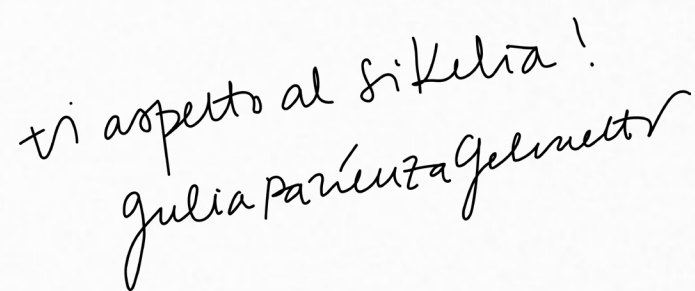 ti aspetto al Sikelia!
Giulia Pazienza Gelmetti